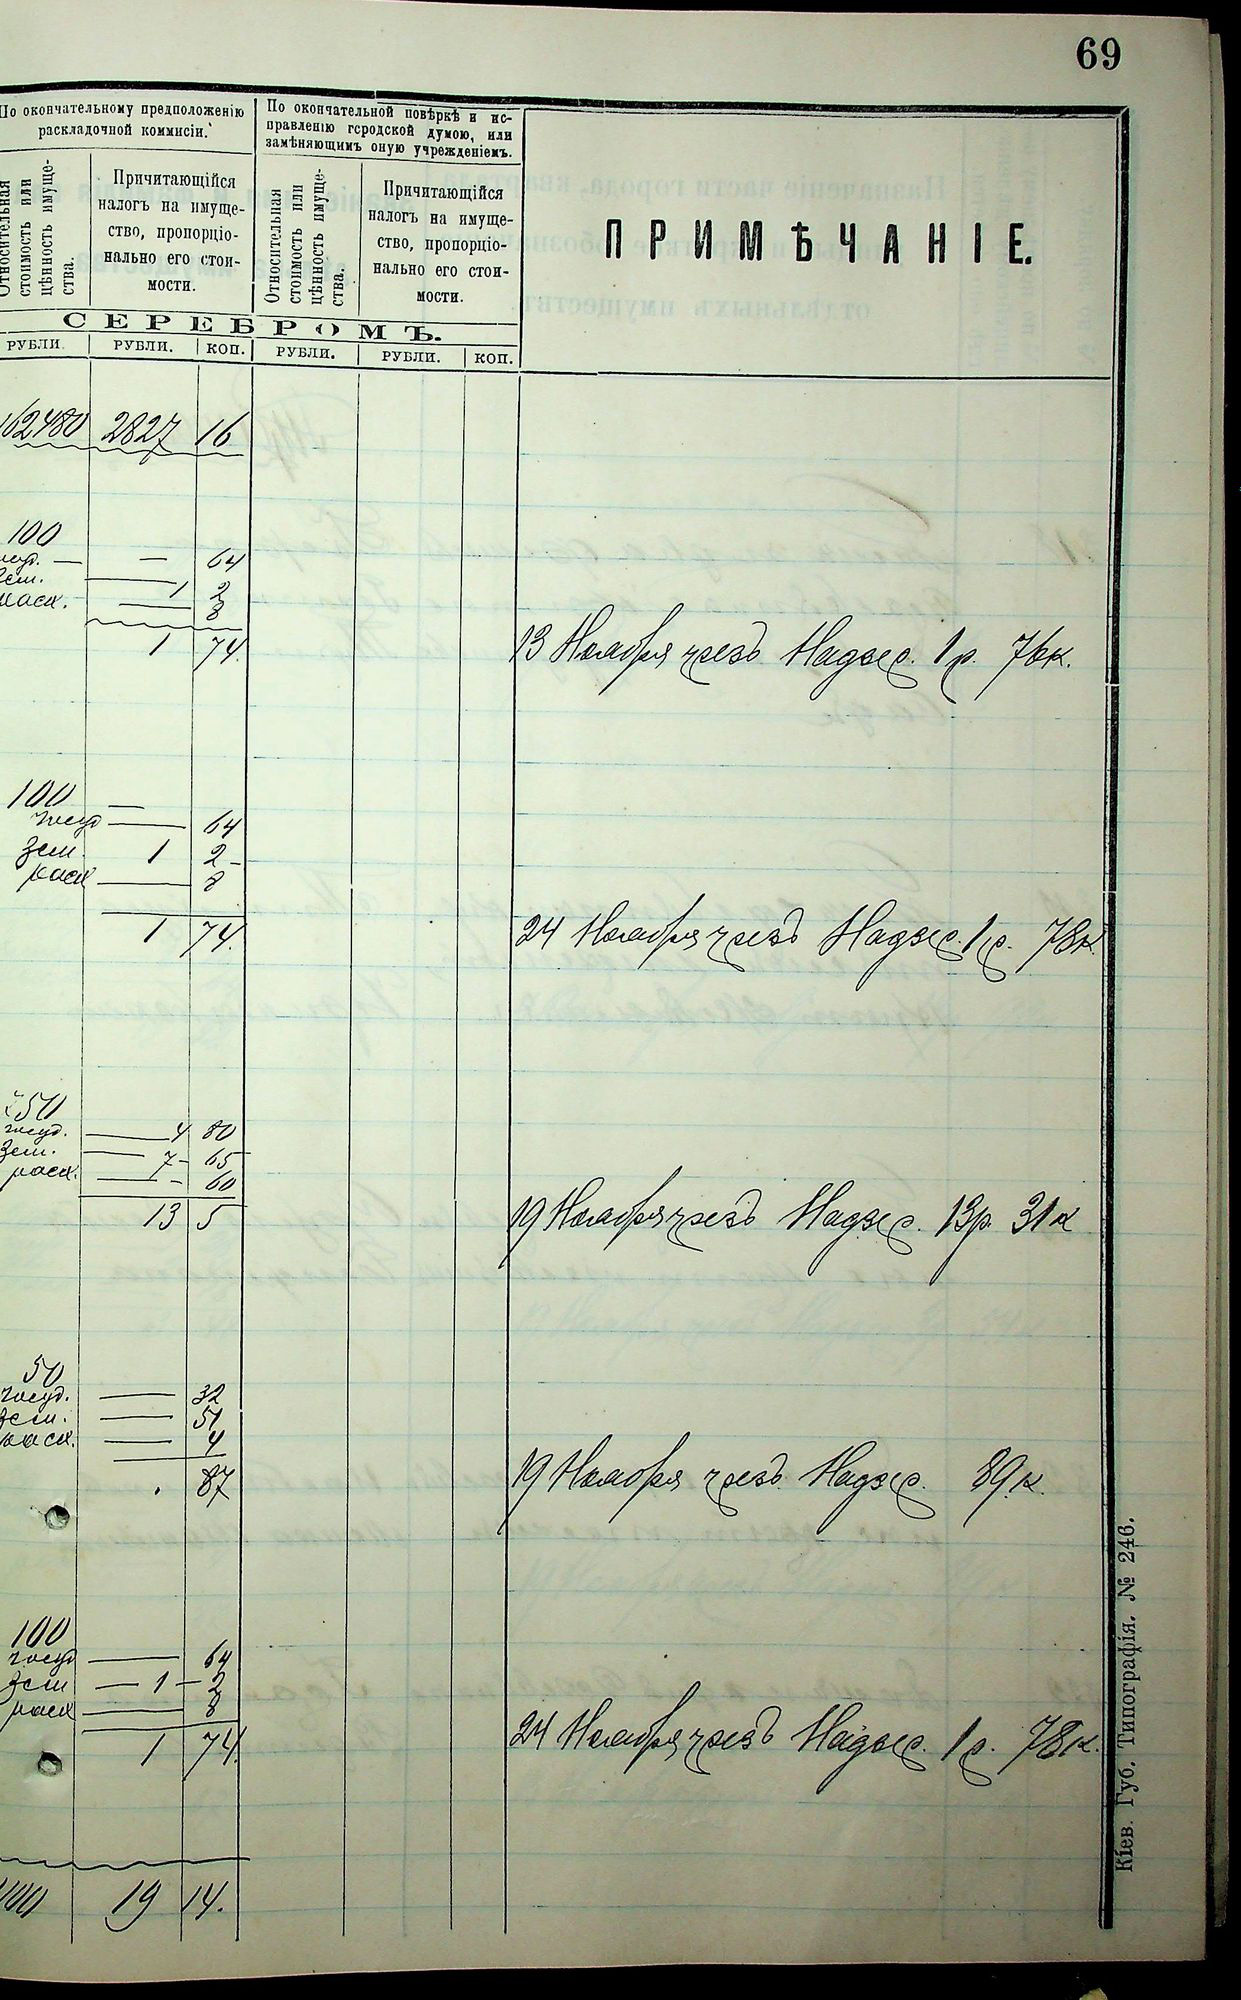 69
По окончательному предположенію
раскладочной коммисіи.
По окончательной повѣркѣ и ис-
правленію городской думою, или
замѣняющимъ оную учрежденіемъ.
Относительная
стоимость или
цѣнность имуще-
ства.
Причитающійся
налогъ на имуще-
ство, пропорціо-
нально его стои-
мости.
Относительная
стоимость или
цѣнность имуще-
ства.
Причитающійся
налогъ на имуще-
ство, пропорціо-
нально его стои-
мости.
ПРИМѢЧАНІЕ.
СЕРЕБРОМЪ.
РУБЛИ. РУБЛИ. КОП. РУБЛИ. РУБЛИ. КОП.
162480 2827 16
100
госуд. — — 64
Зем. — 1 2
расх. — 8
1 74.
13 Ноября чрезъ Надзир. 1 р. 76 к.
100 —
госуд — 64
Зем. 1 2 -
расх — 8
1 74.
24 Ноября чрезъ Надзир. 1 р. 78 к.
750
госуд. — 4 80
Зем. — 7 - 65
расх. — - 60
13 5
19 Ноября чрезъ Надзир. 13 р. 31 к
50
госуд. — 32
Зем. — 51
расх. — 4
87
19 Ноября чрезъ Надзир. 89 к.
100
госуд — 64
Зем — 1 - 2
расх — 8
1 74.
24 Ноября чрезъ Надзир. 1 р. 78 к.
19 14.
Кіев. Губ. Типографія. № 246.